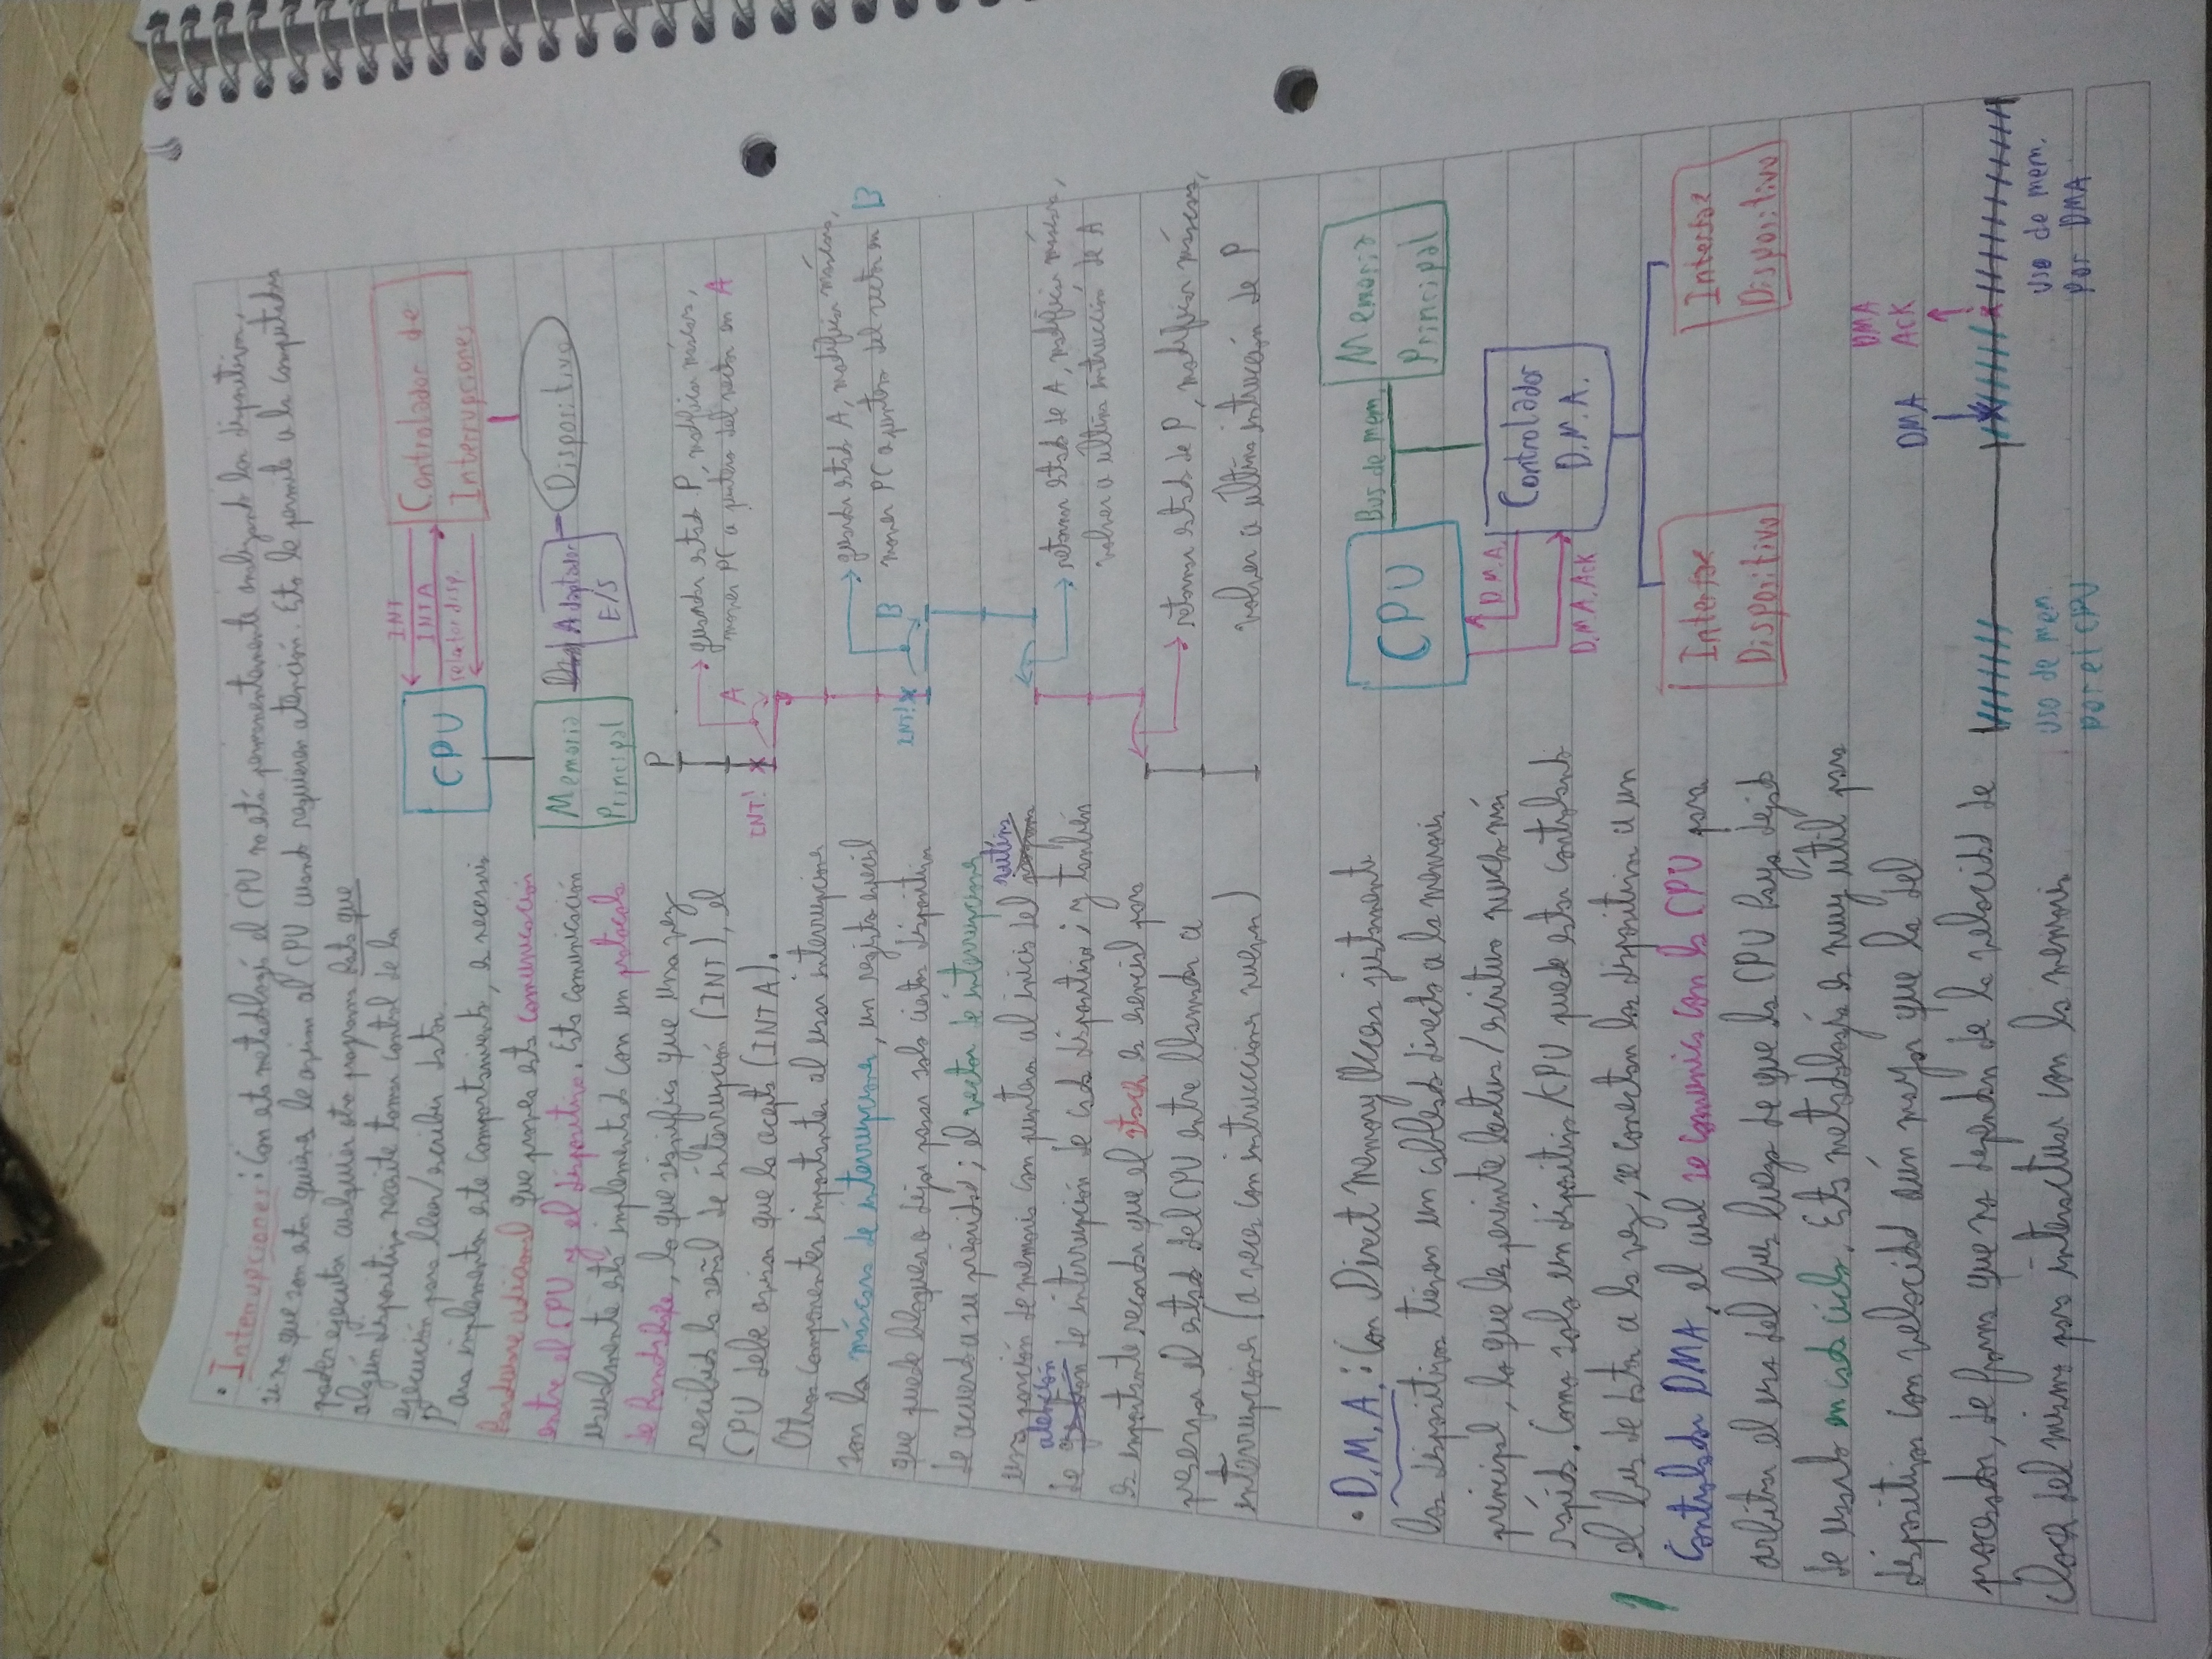 • Interrupciones: Con esta metodología el CPU no está permanentemente analizando los dispositivos,
si no que son estos quienes le avisan al CPU cuando requieren atención. Esto le permite a la computadora
poder ejecutar cualquier otro programa hasta que
algún dispositivo necesite tomar control de la
ejecución para leer/escribir datos.
Para implementar este comportamiento, es necesario
hardware adicional que provea esta comunicación
entre el CPU y el dispositivo. Esta comunicación
usualmente está implementada con un protocolo
de handshake, lo que significa que una vez
recibida la señal de interrupción (INT), el
CPU debe avisar que la acepta (INTA).
Otros componentes importantes al usar interrupciones
son la máscara de interrupciones, un registro especial
que puede bloquear o dejar pasar solo ciertos dispositivos
de acuerdo a su prioridad; el vector de interrupciones
una porción de memoria con punteros al inicio del rutina
de atención de interrupción de cada dispositivo; y también
es importante recordar que el stack es esencial para
preservar el estado del CPU entre llamadas a
interrupciones (a veces con instruccciones nuevas)
CPU
INT
INTA
selector disp.
Controlador de
Interrupciones
Memoria
Principal
Adaptador
E/S
Dispositivo
P
INT!
A
guardar estado P, modificar máscara,
mover PC a puntero del vector en A
INT!
B
guardar estado A, modificar máscara,
mover PC a puntero del vector en B
retomar estado de A, modificar máscara,
volver a ultima instrucción de A
retomar estado de P, modificar máscara,
volver a última intrucción de P
• D.M.A.: Con Direct Memory Access justamente
los dispositivos tienen un cableado directo a la memoria
principal, lo que les permite lectura/escritura mucho más
rápida. Como solo un dispositivo/CPU puede estar controlando
el bus de datos a la vez, se conectan los dispositivos a un
Controlador DMA, el cual se comunica con la CPU para
arbitrar el uso del bus luego de que la CPU haya dejado
de usarlo en cada ciclo. Esta metodología es muy útil para
dispositivos con velocidad aún mayor que la del
procesador, de forma que no dependan de la velocidad de
clock del mismo para interactuar con la memoria
CPU
Bus de mem.
Memoria
Principal
D.M.A.
D.M.A. Ack
Controlador
D.M.A.
Interfaz
Dispositivo
Interfaz
Dispositivo
DMA
DMA
Ack
uso de mem.
por el CPU
uso de mem.
por DMA